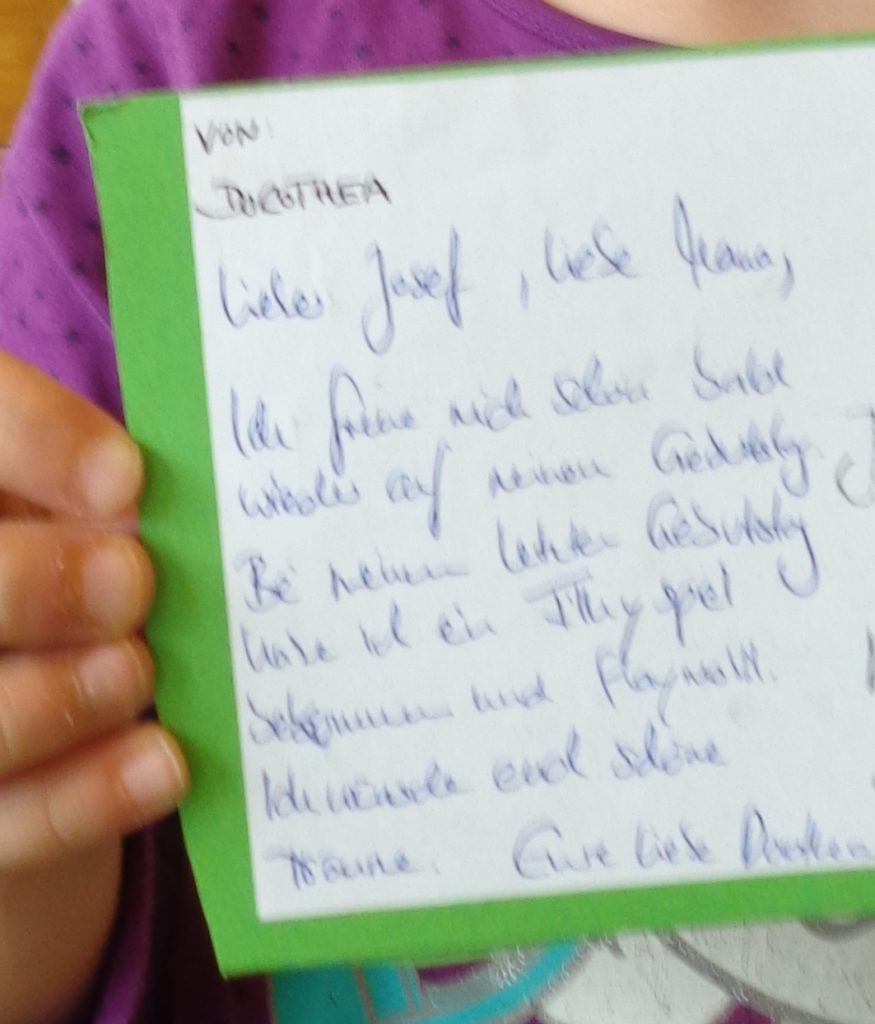 VON:
DOROTHEA
Lieber Josef, liebe
Ich freue mich schon bald
wieder auf meinen Geburtstag.
Bei meinem letzten Geburtstag
habe ich ein spiel
bekommen und Playmobil.
Ich wünsche euch schöne
Träume. Eure liebe Dorothea